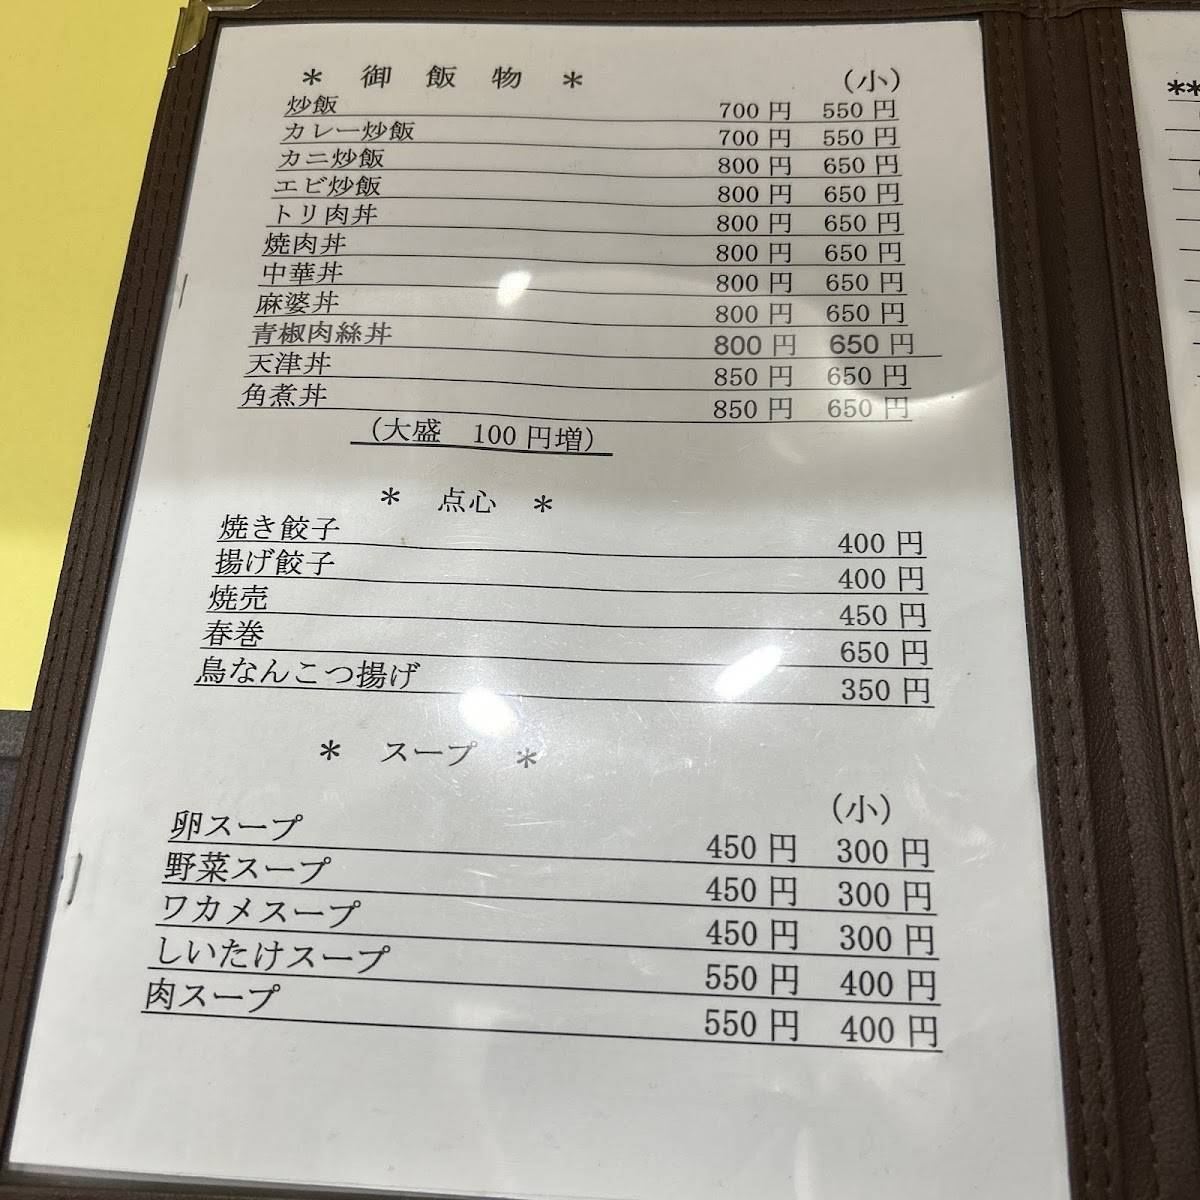 ＊ 御飯物 ＊ （小）
炒飯 700円 550円
カレー炒飯 700円 550円
カニ炒飯 800円 650円
エビ炒飯 800円 650円
トリ肉丼 800円 650円
焼肉丼 800円 650円
中華丼 800円 650円
麻婆丼 800円 650円
青椒肉絲丼 800円 650円
天津丼 850円 650円
角煮丼 850円 650円
（大盛 100円増）
＊ 点心 ＊
焼き餃子 400円
揚げ餃子 400円
焼売 450円
春巻 650円
鳥なんこつ揚げ 350円
＊ スープ ＊
（小）
卵スープ 450円 300円
野菜スープ 450円 300円
ワカメスープ 450円 300円
しいたけスープ 550円 400円
肉スープ 550円 400円
**